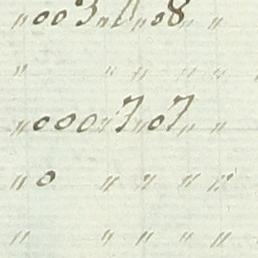 " 003 " 11 " 08 " "
" " " " "
" 000 " 7 " 07 " "
" 0 " " " "
" " " " "